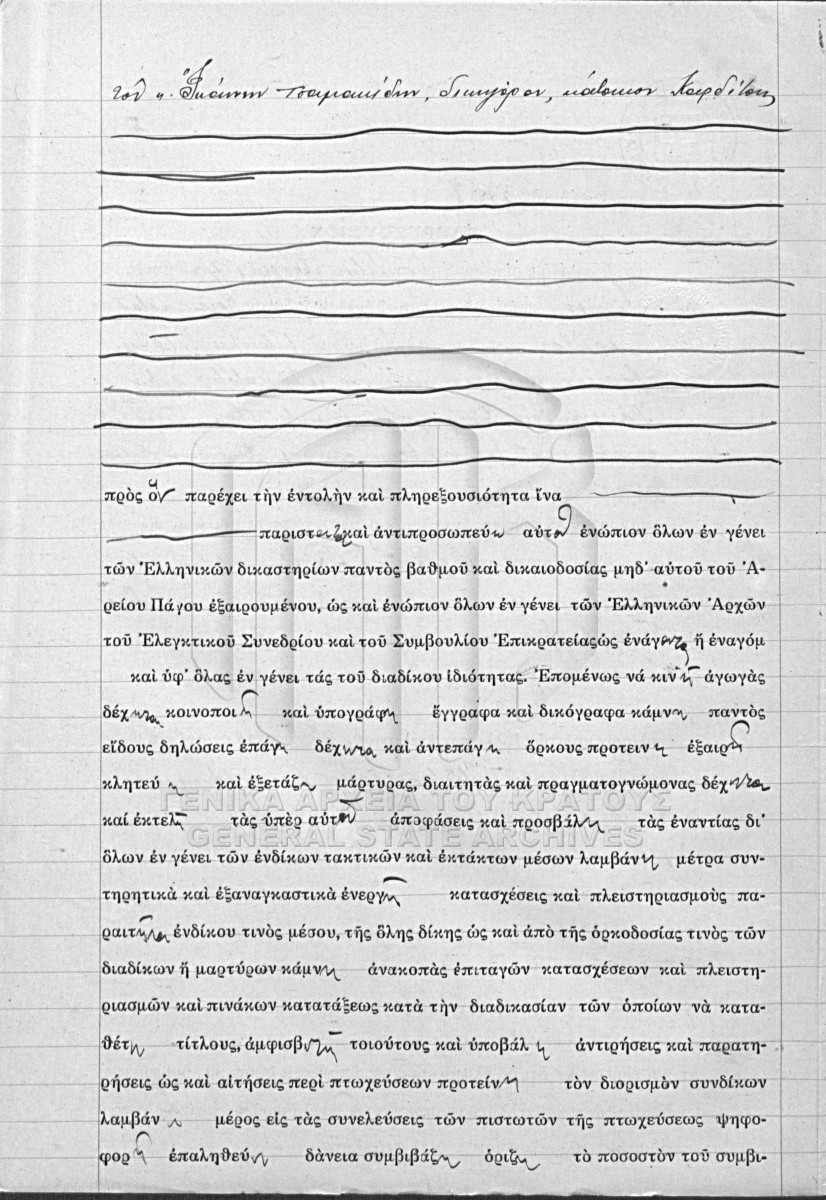 τὸν κ. Ἰωάννην Τσαμακίδην, δικηγόρον, κάτοικον Καρδίτσης
πρὸς ὃν παρέχει τὴν ἐντολὴν καὶ πληρεξουσιότητα ἵνα
παρισταται καὶ ἀντιπροσωπεύη αὐτὸν ἐνώπιον ὅλων ἐν γένει
τῶν Ἑλληνικῶν δικαστηρίων παντὸς βαθμοῦ καὶ δικαιοδοσίας μηδ' αὐτοῦ τοῦ Ἀ-
ρείου Πάγου ἐξαιρουμένου, ὡς καὶ ἐνώπιον ὅλων ἐν γένει τῶν Ἑλληνικῶν Ἀρχῶν
τοῦ Ἐλεγκτικοῦ Συνεδρίου καὶ τοῦ Συμβουλίου Ἐπικρατείας ὡς ἐνάγοντα ἢ ἐναγόμ
καὶ ὑφ' ὅλας ἐν γένει τάς τοῦ διαδίκου ἰδιότητας. Ἑπομένως νά κινῆ ἀγωγὰς
δέχηται κοινοποιῆ καὶ ὑπογράφη ἔγγραφα καὶ δικόγραφα κάμνη παντὸς
εἴδους δηλώσεις ἐπάγη δέχηται καὶ ἀντεπάγη ὅρκους προτεινη ἐξαιρῆ
κλητεύη καὶ ἐξετάζη μάρτυρας, διαιτητὰς καὶ πραγματογνώμονας δέχηται
καί ἐκτελῆ τὰς ὑπὲρ αὐτοῦ ἀποφάσεις καὶ προσβάλη τὰς ἐναντίας δι'
ὅλων ἐν γένει τῶν ἐνδίκων τακτικῶν καὶ ἐκτάκτων μέσων λαμβάνη μέτρα συν-
τηρητικὰ καὶ ἐξαναγκαστικὰ ἐνεργῆ κατασχέσεις καὶ πλειστηριασμοὺς πα-
ραιτῆται ἐνδίκου τινὸς μέσου, τῆς ὅλης δίκης ὡς καὶ ἀπὸ τῆς ὁρκοδοσίας τινὸς τῶν
διαδίκων ἢ μαρτύρων κάμνη ἀνακοπὰς ἐπιταγῶν κατασχέσεων καὶ πλειστη-
ριασμῶν καὶ πινάκων κατατάξεως κατὰ τὴν διαδικασίαν τῶν ὁποίων νὰ κατα-
θέτη τίτλους, ἀμφισβητῆ τοιούτους καὶ ὑποβάλη ἀντιρήσεις καὶ παρατη-
ρήσεις ὡς καὶ αἰτήσεις περὶ πτωχεύσεων προτείνη τὸν διορισμὸν συνδίκων
λαμβάνη μέρος εἰς τὰς συνελεύσεις τῶν πιστωτῶν τῆς πτωχεύσεως ψηφο-
φορῆ ἐπαληθεύη δάνεια συμβιβάζη ὁρίζη τὸ ποσοστὸν τοῦ συμβι-
ΓΕΝΙΚΑ ΑΡΧΕΙΑ ΤΟΥ ΚΡΑΤΟΥΣ
GENERAL STATE ARCHIVES